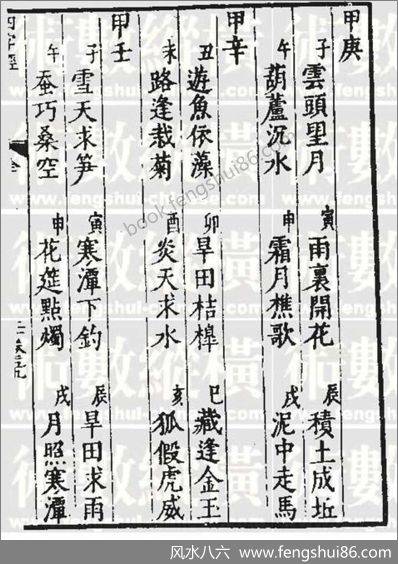 甲庚
子 雲頭望月 寅 雨裏開花 辰 積土成坵
午 葫蘆沉水 申 霜月樵歌 戌 泥中走馬
甲辛
丑 遊魚依藻 卯 旱田桔槔 巳 藏逢金玉
未 路逢栽菊 酉 炎天求水 亥 狐假虎威
甲壬
子 雪天求笋 寅 寒潭下釣 辰 旱田求雨
午 蚕巧桑空 申 花筵點燭 戌 月照寒潭
四字經 全
风水八六 - www.fengshui86.com